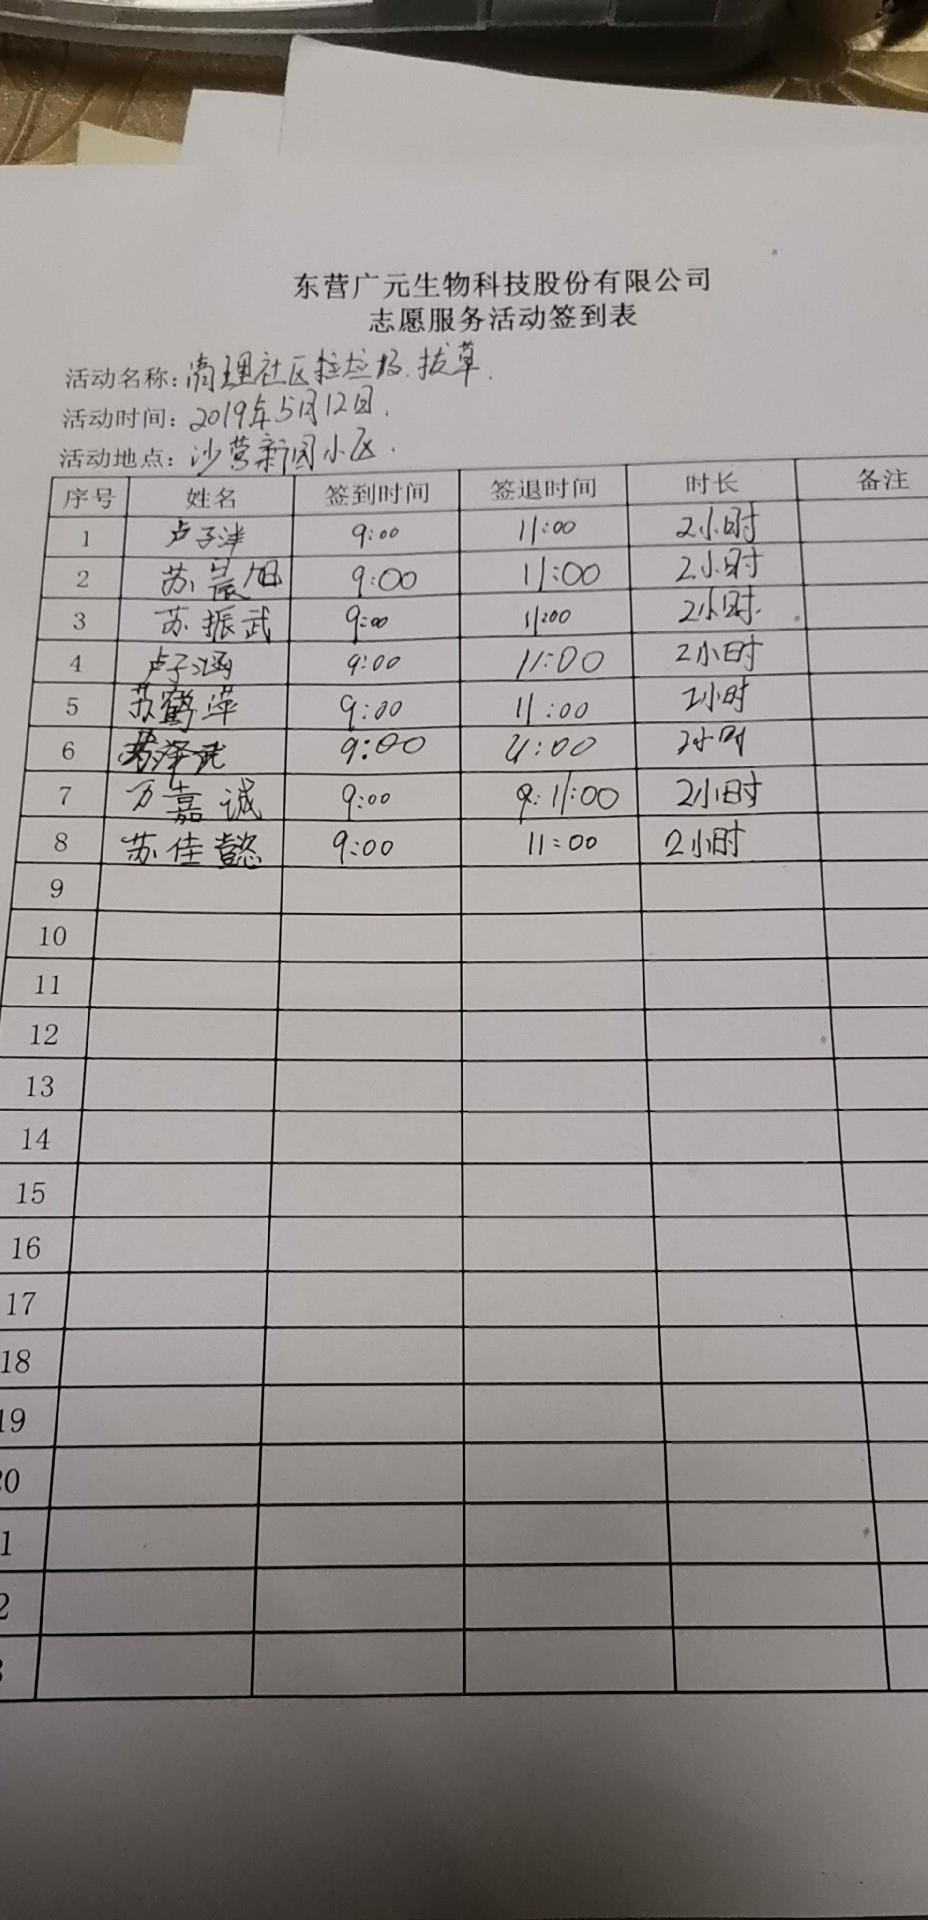 东营广元生物科技股份有限公司
志愿服务活动签到表
活动名称：清理社区捡垃圾.拔草.
活动时间：2019年5月12日.
活动地点：沙营新园小区.
序号 姓名 签到时间 签退时间 时长 备注
1 卢子洋 9:00 11:00 2小时
2 苏晨旭 9:00 11:00 2小时
3 苏振武 9:00 11:00 2小时.
4 卢子涵 9:00 11:00 2小时
5 苏鹤萍 9:00 11:00 2小时
6 9:00 11:00 2小时
7 万嘉诚 9:00 9:11:00 2小时
8 苏佳懿 9:00 11:00 2小时
9
10
11
12
13
14
15
16
17
18
19
20
1
2
3